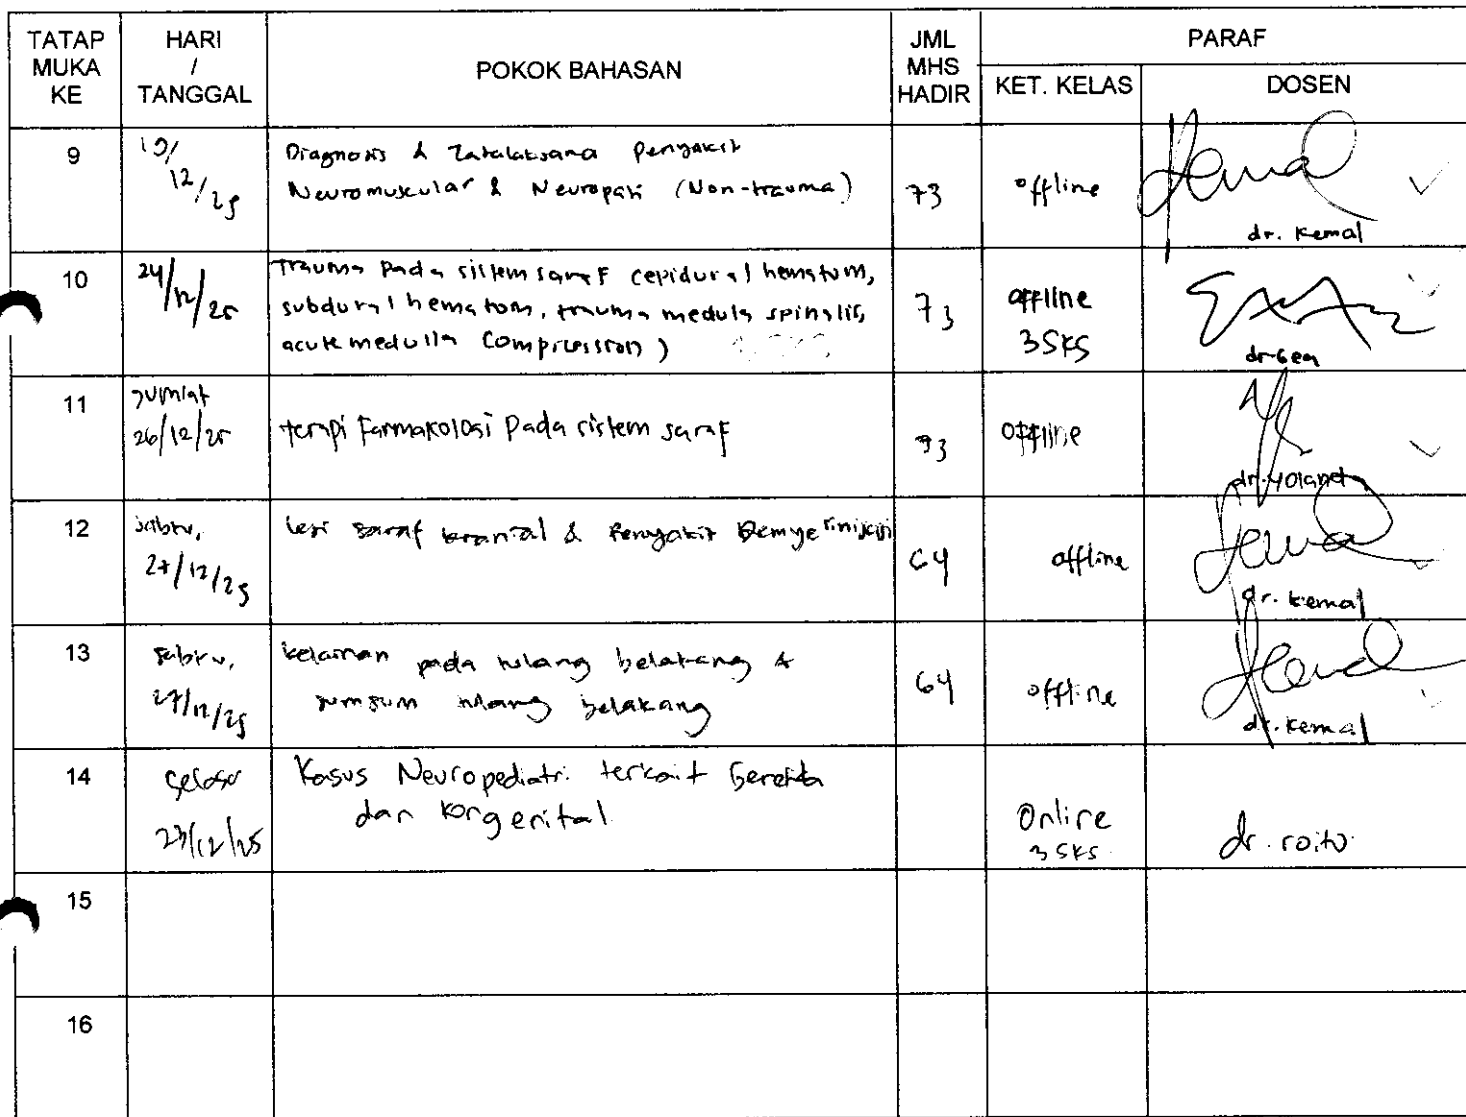 TATAP MUKA KE
HARI / TANGGAL
POKOK BAHASAN
JML MHS HADIR
PARAF
KET. KELAS
DOSEN
9
19/12/25
Diagnosis & Tatalaksana Penyakit
Neuromuskular & Neuropati (Non-trauma)
73
offline
dr. Kemal
10
24/12/25
Trauma pada sistem saraf (epidural hematom,
subdural hematom, trauma medula spinalis,
acute medulla compression)
73
offline
3 SKS
11
Jumiat
26/12/25
terapi Farmakologi Pada sistem saraf
73
offline
dr. Yoland
12
sabtu,
27/12/25
lesi saraf kranial & Penyakit Demyelinisasi
64
offline
dr. kemal
13
sabtu,
27/12/25
kelainan pada tulang belakang &
sumsum tulang belakang
64
offline
dr. kemal
14
Selasa
23/12/25
Kasus Neuropediatri terkait Genetika
dan kongenital
Online
3 SKS
dr. roito
15
16